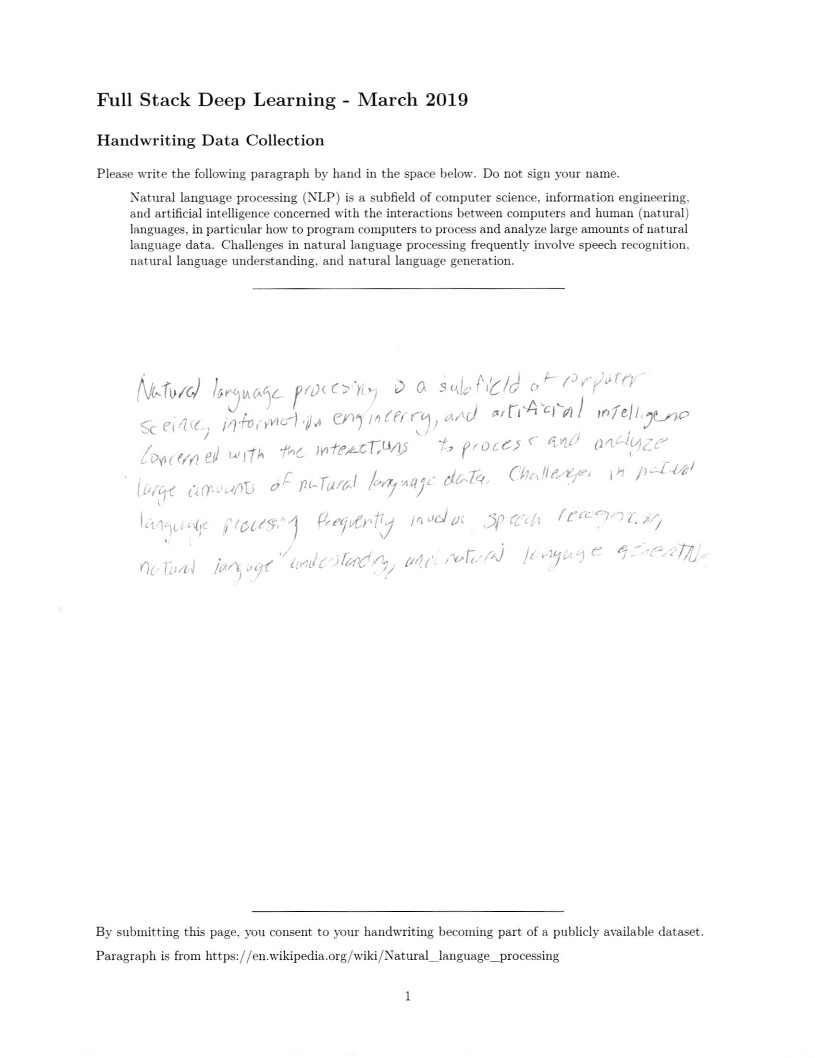 Full Stack Deep Learning - March 2019
Handwriting Data Collection
Please write the following paragraph by hand in the space below. Do not sign your name.
Natural language processing (NLP) is a subfield of computer science, information engineering,
and artificial intelligence concerned with the interactions between computers and human (natural)
languages, in particular how to program computers to process and analyze large amounts of natural
language data. Challenges in natural language processing frequently involve speech recognition,
natural language understanding, and natural language generation.
Natural language processing is a subfield of computer
sceince, information engineerry, and artificial intelligence
concerned with the interactions to process and analyze
large amounts of natural language data. Challenges in natural
language processing frequently involve speech recognition,
natural language understanding, and natural language generation
By submitting this page, you consent to your handwriting becoming part of a publicly available dataset.
Paragraph is from https://en.wikipedia.org/wiki/Natural_language_processing
1